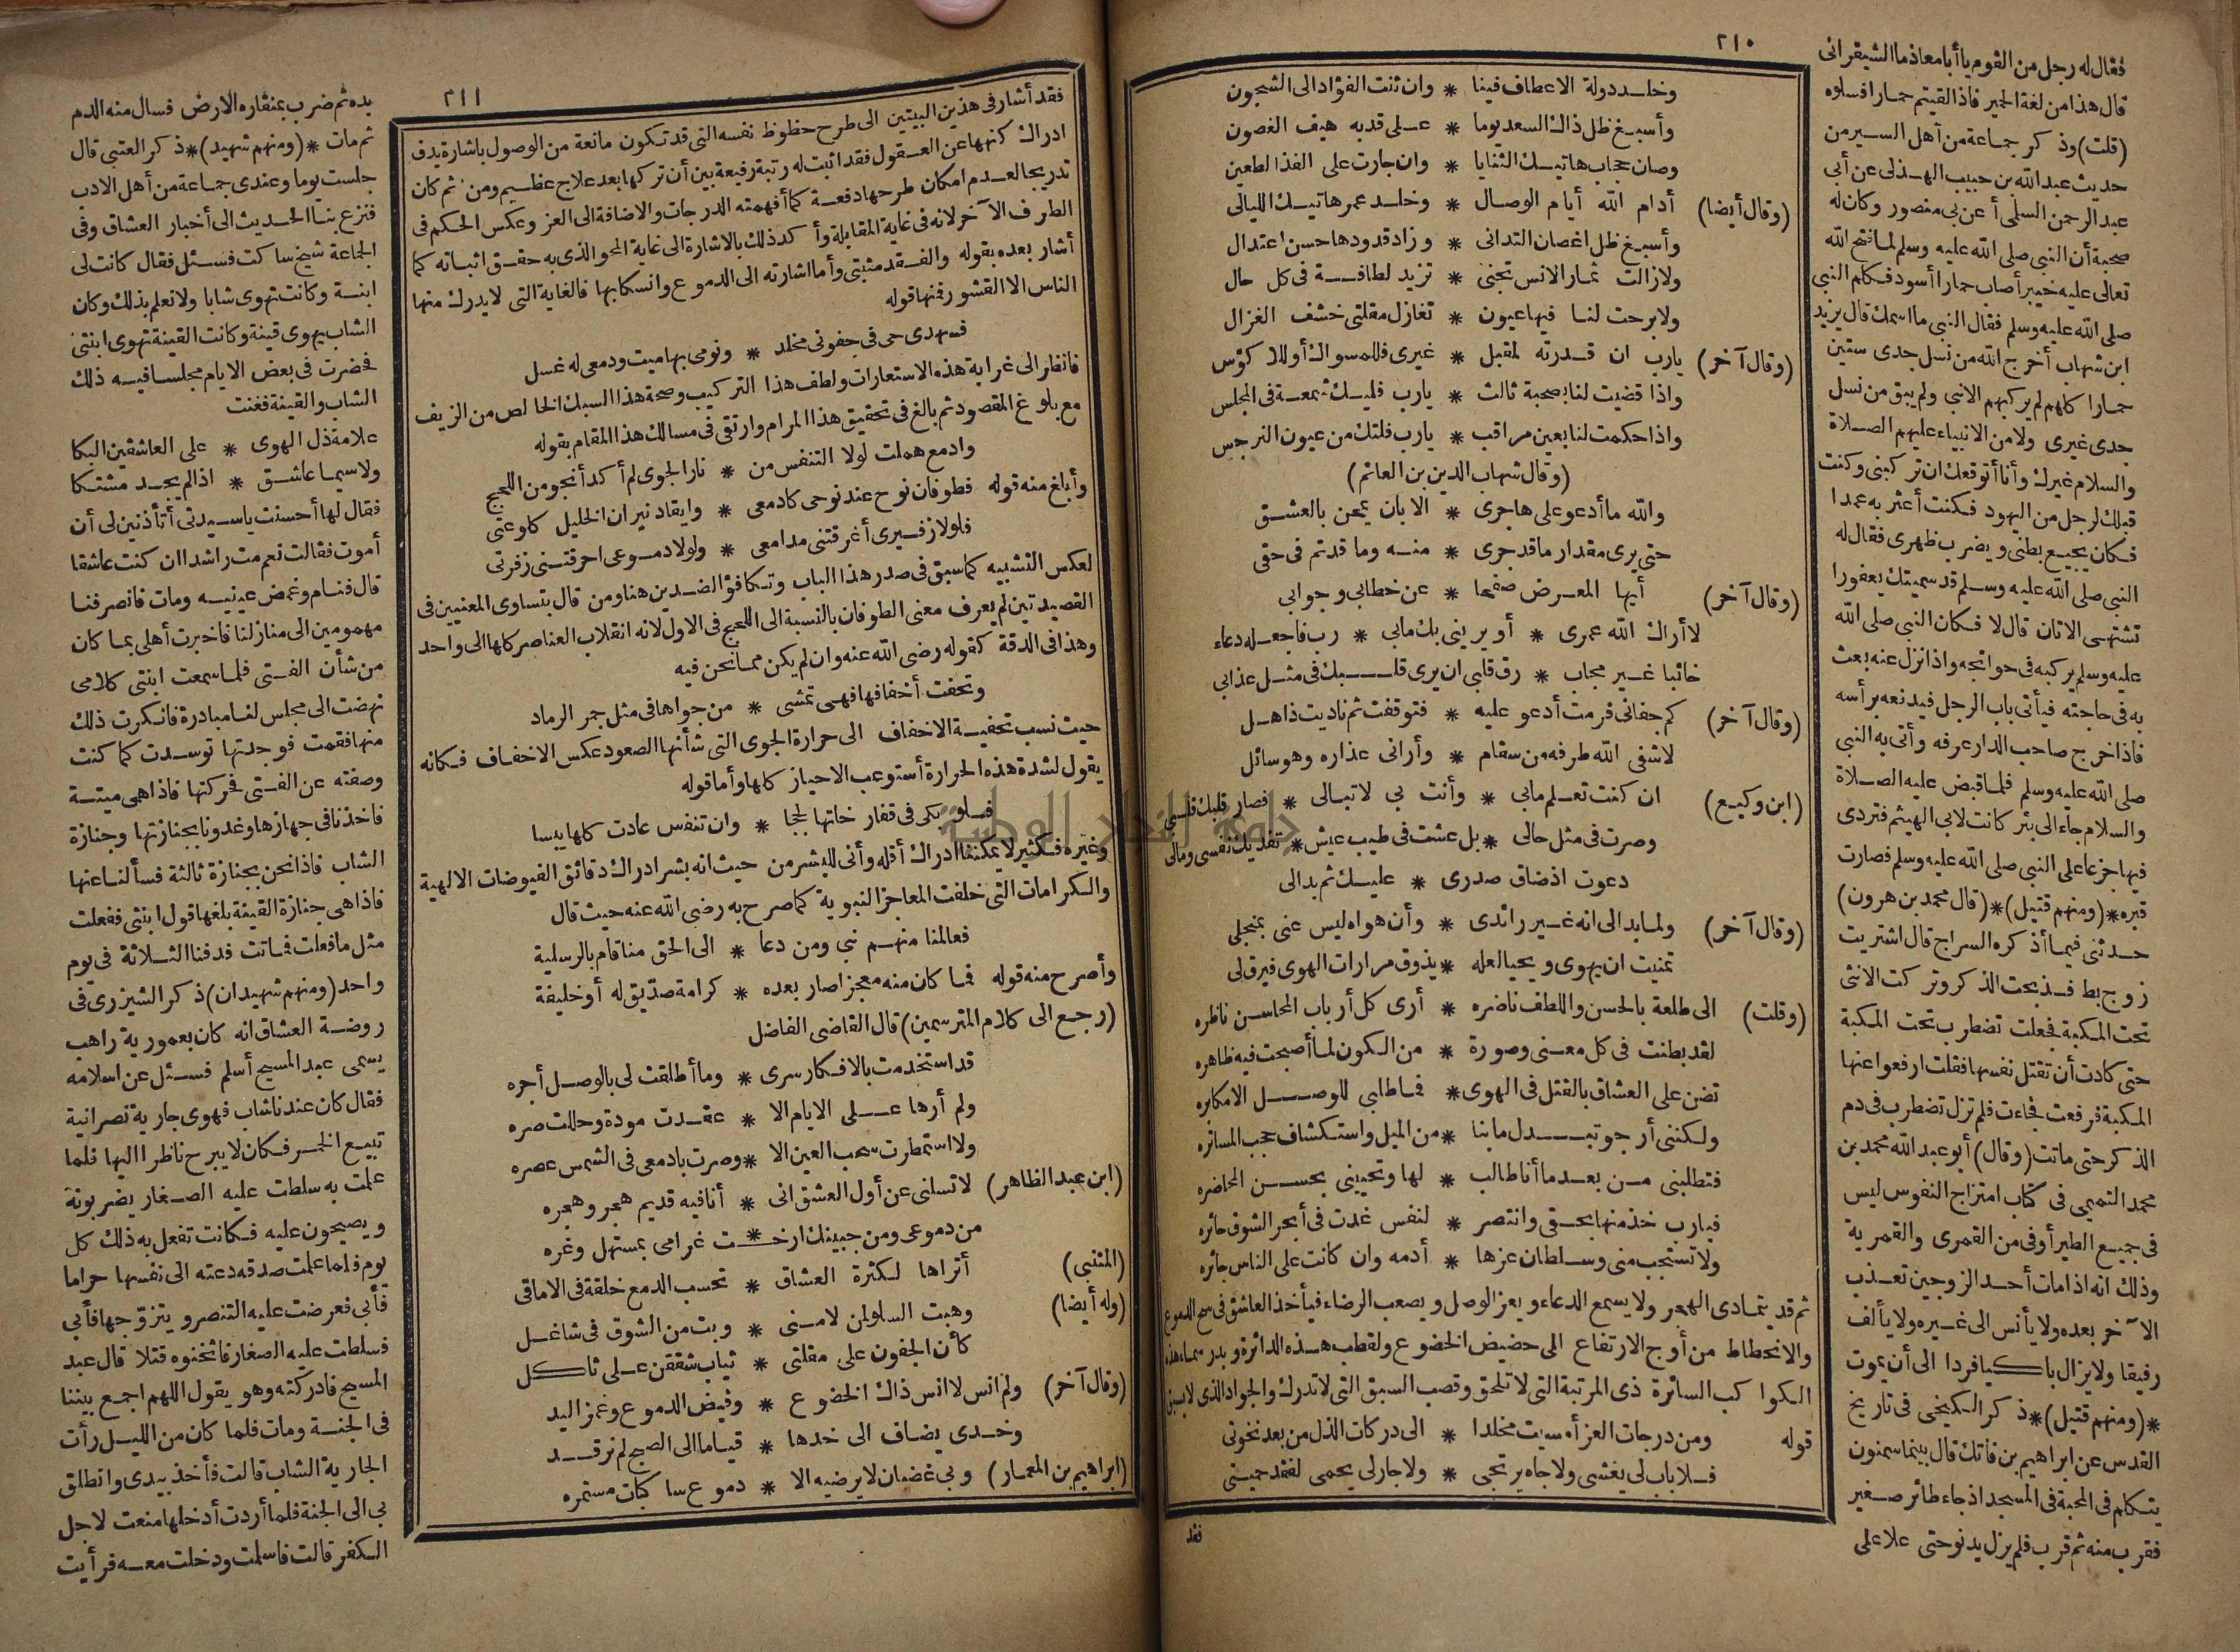 ٢١٠
وخلد دولة الاعطاف فينا * وان ثنت الفؤاد الى الشجون
وأسبغ ظل ذاك السعد يوما * على قد به هيف الغصون
وصان حجاب هاتيك الثنايا * وان جارت على الفذا لطعين
(وقال أيضا) أدام الله أيام الوصال * وخلد عمرها تيك الليالى
وأسبغ ظل اغصان التدانى * وزاد قدودها حسن اعتدال
ولا زالت ثمار الانس تجنى * تزيد لطافة فى كل حال
ولا برحت لنا فيها عيون * تغازل مقلتى خشف الغزال
(وقال آخر) يارب ان قدرته لمقبل * غيرى فللمسواك أو للا كؤس
واذا قضيت لنا بصحبة ثالث * يارب فليك شمعة فى المجلس
واذا حكمت لنا بعين مراقب * يارب فلتك من عيون النرجس
(وقال شهاب الدين بن العاثم)
والله ما أدعو على هاجرى * الا بان يمحن بالعشق
حتى يرى مقدار ما قد جرى * منه وما قدتم فى حقى
(وقال آخر) أيها المعرض صفحا * عن خطابى وجوابى
لا أراك الله عمرى * أو يرينى بك مابى * رب فاجعله دعاء
خائبا غير مجاب * رق قلبى ان يرى قلبك فى مثل عذابى
(وقال آخر) كم جفانى فرمت أدعو عليه * فتوقفت ثم ناديت ذاهل
لا شفى الله طرفه من سقام * وأرانى عذاره وهو سائل
(ابن وكيع) ان كنت تعلم مابى * وأنت بى لا تبالى * فصار قلبك قلبى
وصرت فى مثل حالى * بل عشت فى طيب عيش * تفديك نفسى ومالى
دعوت اذ ضاق صدرى * عليك ثم بدالى
(وقال آخر) ولما بدالى انه غير رائدى * وأن هواه ليس عنى بمنجلى
تمنيت ان يهوى ويحيا لعله * يذوق مرارات الهوى فيرق لى
(وقلت) الى طلعة بالحسن واللطف ناضره * أرى كل أرباب المحاسن ناظره
لقد بطنت فى كل معنى وصورة * من الكون لما أصبحت فيه ظاهره
تضن على العشاق بالقتل فى الهوى * فما طالبى للوصل الا مكابره
ولكننى أرجو تبدل ما بنا * من الميل واستكشاف حجب المسائره
فتطلبنى من بعد ما أنا طالب * لها وتحيينى بحسن المحاضره
فيارب خذ منها بحقى وانتصر * لنفس غدت فى أبحر الشوق حائره
ولا تستجب منى وسلطان عزها * أدمه وان كانت على الناس جائره
ثم قد يتمادى الهجر ولا يسمع الدعاء ويعز الوصل ويصعب الرضاء فيأخذ العاشق فى سح الدموع
والانحطاط من أوج الارتفاع الى حضيض الخضوع ولقطب هذه الدائرة وبدر سماء هذه
الكواكب السائرة ذى المرتبة التى لا تلحق وقصب السبق التى لا تدرك والجواد الذى لا يسبق
قوله ومن درجات العز أمسيت مخلدا * الى دركات الذل من بعد نخوتى
فلا باب لى يغشى ولا جاه يرتجى * ولا جار لى يحمى لفقد حميتى
فقد
فقال له رجل من القوم يا أبا معاذ ما الشيقرانى
قال هذا من لغة الحمير فاذا لقيتم حمارا فسلوه
(قلت) وذكر جماعة من أهل السير من
حديث عبد الله بن حبيب الهذلى عن أبى
عبد الرحمن السلمى أعن بى منصور وكان له
صحبة أن النبى صلى الله عليه وسلم لما فتح الله
تعالى عليه خيبر أصاب حمارا أسود فكلم النبى
صلى الله عليه وسلم فقال النبى ما اسمك قال يزيد
ابن شهاب أخرج الله من نسل جدى ستين
حمارا كلهم لم يركبهم الا نبى ولم يبق من نسل
جدى غيرى ولا من الانبياء عليهم الصلاة
والسلام غيرك وأنا أتوقعك ان تركبنى وكنت
قبلك لرجل من اليهود فكنت أعثر به عمدا
فكان يجيع بطنى ويضرب ظهرى فقال له
النبى صلى الله عليه وسلم قد سميتك يعفورا
تشتهى الاتان قال لا فكان النبى صلى الله
عليه وسلم يركبه فى حوائجه واذا نزل عنه بعث
به فى حاجته فيأتى باب الرجل فيدفعه برأسه
فاذا خرج صاحب الدار عرفه وأتى به النبى
صلى الله عليه وسلم فلما قبض عليه الصلاة
والسلام جاء الى بئر كانت لابى الهيثم فتردى
فيها جزعا على النبى صلى الله عليه وسلم فصارت
قبره * (ومنهم قتيل) * (قال محمد بن هرون)
حدثنى فيما أذكره السراج قال اشتريت
زوج بط فذبحت الذكر وتركت الانثى
تحت المكبة فجعلت تضطرب تحت المكبة
حتى كادت أن تقتل نفسها فقلت ارفعوا عنها
المكبة فرفعت فجاءت فلم تزل تضطرب فى دم
الذكر حتى ماتت (وقال) أبو عبد الله محمد بن
محمد التميمى فى كتاب امتزاج النفوس ليس
فى جميع الطير أوفى من القمرى والقمرية
وذلك انه اذا مات أحد الزوجين تعذب
الآخر بعده ولا يأنس الى غيره ولا يألف
رفيقا ولا يزال باكيا فردا الى أن يموت
* (ومنهم قتيل) * ذكر الكنجى فى تاريخ
القدس عن ابراهيم بن فاتك قال بينما سمنون
يتكلم فى المحبة فى المسجد اذ جاء طائر صغير
فقرب منه ثم قرب فلم يزل يدنو حتى علا على
٢١١
فقد أشار فى هذين البيتين الى طرح حظوظ نفسه التى قد تكون مانعة من الوصول باشارة يدف
ادراك كنهها عن العقول فقد اثبت له رتبة رفيعة بين أن تركها بعد علاج عظيم ومن ثم كان
تدريجا لعدم امكان طرحها دفعة كما أفهمته الدرجات والاضافة الى العز وعكس الحكم فى
الطرف الآخر لانه فى غاية المقابلة وأكد ذلك بالاشارة الى غاية المحو الذى به حقق اثباته كما
أشار بعده بقوله والفقد مثبتى وأما اشارته الى الدموع وانسكابها فالغاية التى لا يدرك منها
الناس الا القشور فمنها قوله
فسهدى حى فى جفونى مخلد * ونومى بها ميت ودمعى له غسل
فانظر الى غرابة هذه الاستعارات ولطف هذا التركيب وصحة هذا السبك الخالص من الزيف
مع بلوغ المقصود ثم بالغ فى تحقيق هذا المرام وارتقى فى مسالك هذا المقام بقوله
وادمع هملت لولا التنفس من * نار الجوى لم أكد أنجو من اللجج
وأبلغ منه قوله فطوفان نوح عند نوحى كادمعى * وايقاد نيران الخليل كلوعتى
فلولا زفيرى أغرقتنى مدامعى * ولولا دموعى احرقتنى زفرتى
لعكس التشبيه كما سبق فى صدر هذا الباب وتكافؤ الضدين هنا ومن قال بتساوى المعنيين فى
القصيدتين لم يعرف معنى الطوفان بالنسبة الى اللجج فى الاول لانه انقلاب العناصر كلها الى واحد
وهذا فى الدقة كقوله رضى الله عنه وان لم يكن مما نحن فيه
وتحفت أخفافها فهى تمشى * من جواها فى مثل جمر الرماد
حيث نسب تحفية الاخفاف الى حرارة الجوى التى شأنها الصعود عكس الاخفاف فكانه
يقول لشدة هذه الحرارة أستوعب الاحياز كلها وأما قوله
فلو بكى فى قفار خلتها لججا * وان تنفس عادت كلها يبسا
وغيره فكثير لا يمكننا ادراك أقله وأنى للبشر من حيث انه بشر ادراك دقائق الفيوضات الالهية
والكرامات التى خلفت المعاجز النبوية كما صرح به رضى الله عنه حيث قال
فعالمنا منهم نبى ومن دعا * الى الحق منا قام بالرسلية
وأصرح منه قوله فما كان منه معجزا صار بعده * كرامة صدّيق له أو خليفة
(رجع الى كلام المترسمين) قال القاضى الفاضل
قد استخدمت بالافكار سرى * وما أطلقت لى بالوصل أجره
ولم أرها على الايام الا * عقدت مودة وحللت صره
ولا استمطرت سحب العين الا * وصرت بادمعى فى الشمس عصره
(ابن عبد الظاهر) لا تسلنى عن أول العشق انى * أنا فيه قديم هجر وهجره
من دموعى ومن جبينك ارخت غرامى بمستهل وغره
(المتنبى) أتراها لكثرة العشاق * تحسب الدمع خلقة فى الاماقى
(وله أيضا) وهبت السلو لمن لامنى * وبت من الشوق فى شاغل
كأن الجفون على مقلتى * ثياب شققن على ثاكل
(وقال آخر) ولم انس لا انس ذاك الخضوع * وفيض الدموع وغمز اليد
وخدى يضاف الى خدها * قياما الى الصبح لم نرقد
(ابراهيم بن المعمار) وبى غضبان لا يرضيه الا * دموع ساكبات مستمره
يده ثم ضرب بمنقاره الارض فسال منه الدم
ثم مات * (ومنهم شهيد) * ذكر العتبى قال
جلست يوما وعندى جماعة من أهل الادب
فنزع بنا الحديث الى أخبار العشاق وفى
الجماعة شيخ ساكت فسئل فقال كانت لى
ابنة وكانت تهوى شابا ولا نعلم بذلك وكان
الشاب يهوى قينة وكانت القينة تهوى ابنتى
فحضرت فى بعض الايام مجلسا فيه ذلك
الشاب والقينة فغنت
علامة ذل الهوى * على العاشقين البكا
ولا سيما عاشق * اذا لم يجد مشتكا
فقال لها أحسنت ياسيدتى أتأذنين لى أن
أموت فقالت نعم مت راشدا ان كنت عاشقا
قال فنام وغمض عينيه ومات فانصرفنا
مهمومين الى منازلنا فاخبرت أهلى بما كان
من شأن الفتى فلما سمعت ابنتى كلامى
نهضت الى مجلس لنا مبادرة فانكرت ذلك
منها فقمت فوجدتها توسدت كما كنت
وصفته عن الفتى فحركتها فاذا هى ميتة
فاخذنا فى جهازها وغدونا بجنازتها وجنازة
الشاب فاذا نحن بجنازة ثالثة فسألنا عنها
فاذا هى جنازة القينة بلغها قول ابنتى ففعلت
مثل ما فعلت فماتت فدفنا الثلاثة فى يوم
واحد (ومنهم شهيدان) ذكر الشيزرى فى
روضة العشاق انه كان بعمورية راهب
يسمى عبد المسيح أسلم فسئل عن اسلامه
فقال كان عندنا شاب فهوى جارية نصرانية
تبيع الخمر فكان لا يبرح ناظرا اليها فلما
علمت به سلطت عليه الصغار يضربونه
ويصيحون عليه فكانت تفعل به ذلك كل
يوم فلما علمت صدقه دعته الى نفسها حراما
فأبى فعرضت عليه التنصر ويتزوّجها فأبى
فسلطت عليه الصغار فاثخنوه قتلا قال عبد
المسيح فادركته وهو يقول اللهم اجمع بيننا
فى الجنة ومات فلما كان من الليل رأت
الجارية الشاب قالت فأخذ بيدى وانطلق
بى الى الجنة فلما أردت أدخلها منعت لاجل
الكفر قالت فاسلمت ودخلت معه فرأيت